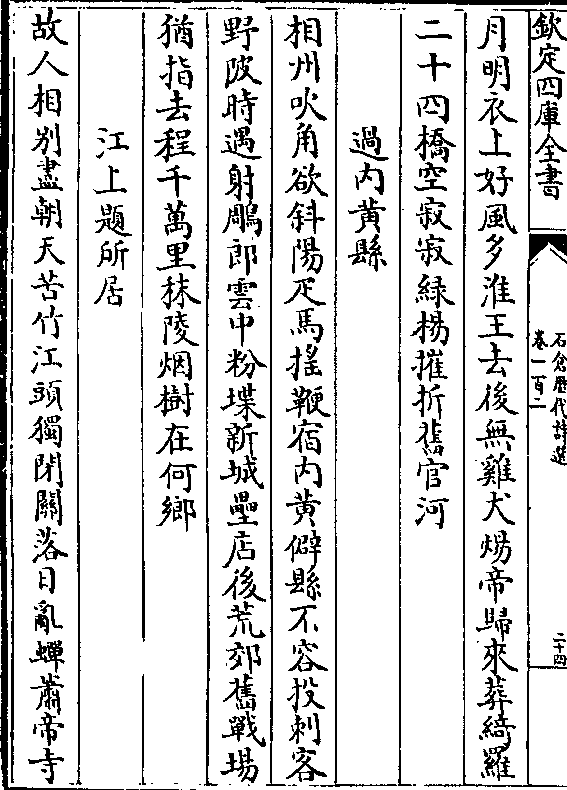 欽定四庫全書
石倉歷代詩選
卷一百二
二十四
月明衣上好風多淮王去後無雞犬煬帝歸來葬綺羅
二十四橋空寂寂緑楊摧折舊官河
過内黄縣
相州吹角欲斜陽疋馬揺鞭宿内黄僻縣不容投刺客
野陂時遇射鵰郎雲中粉堞新城壘店後荒郊舊戰場
猶指去程千萬里秣陵烟樹在何鄉
江上題所居
故人相别盡朝天苦竹江頭獨閉關落日亂蟬蕭帝寺